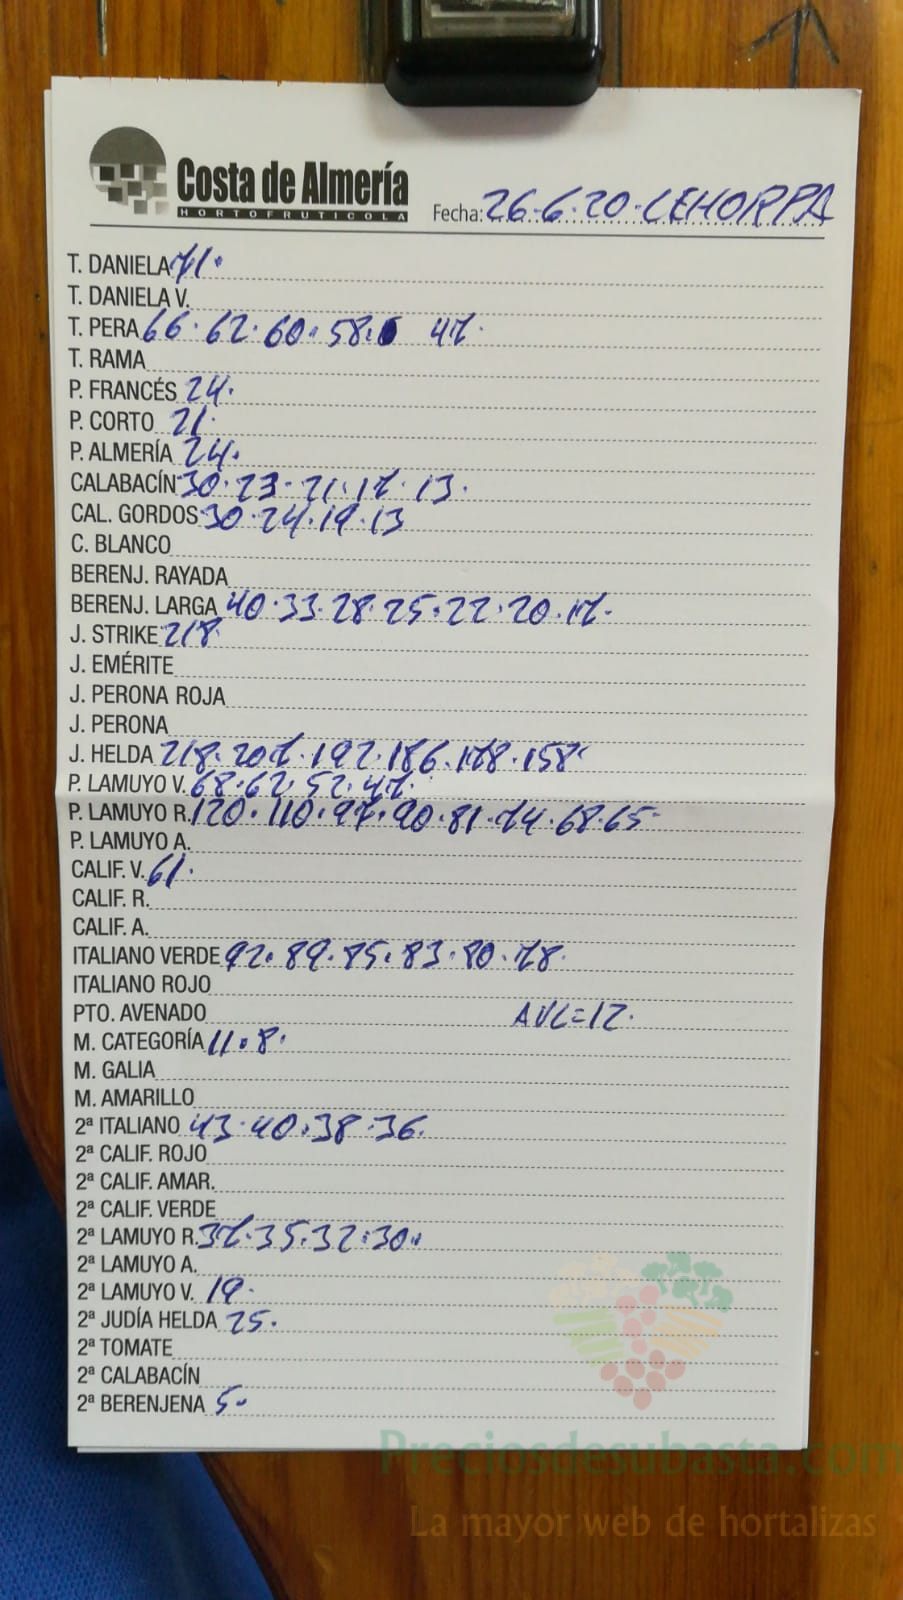 Costa de Almería
HORTOFRUTICOLA
Fecha: 26-6-20-LEHORPA
T. DANIELA 71.
T. DANIELA V.
T. PERA 66. 62. 60. 58. 47.
T. RAMA
P. FRANCÉS 24.
P. CORTO 21.
P. ALMERÍA 24.
CALABACÍN 30. 23. 21. 17. 13.
CAL. GORDOS 30. 24. 19. 13
C. BLANCO
BERENJ. RAYADA
BERENJ. LARGA 40. 33. 28. 25. 22. 20. 17.
J. STRIKE 218.
J. EMÉRITE
J. PERONA ROJA
J. PERONA
J. HELDA 218. 207. 192. 186. 178. 158
P. LAMUYO V. 68. 62. 52. 47.
P. LAMUYO R. 120. 110. 97. 90. 81. 74. 68. 65
P. LAMUYO A.
CALIF. V. 61.
CALIF. R.
CALIF. A.
ITALIANO VERDE 92. 89. 85. 83. 80. 78.
ITALIANO ROJO
PTO. AVENADO AVE=12.
M. CATEGORÍA 11. 8.
M. GALIA
M. AMARILLO
2ª ITALIANO 43. 40. 38. 36.
2ª CALIF. ROJO
2ª CALIF. AMAR.
2ª CALIF. VERDE
2ª LAMUYO R. 37. 35. 32. 30.
2ª LAMUYO A.
2ª LAMUYO V. 19.
2ª JUDÍA HELDA 25.
2ª TOMATE
2ª CALABACÍN
2ª BERENJENA 5.
Preciosdesubasta.com
La mayor web de hortalizas